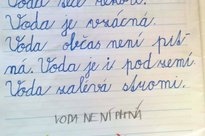 Voda teče řekou.
Voda je vzácná.
Voda občas není pit-
ná. Voda je i pod zemí.
Voda zalévá stromi.
VODA NENÍ PITNÁ